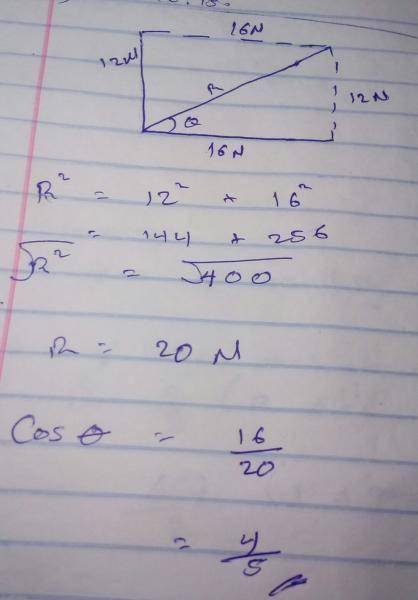 16N
12N
R
θ
12N
16N
R² = 12² + 16²
= 144 + 256
√R² = √400
R = 20 N
Cos θ = 16/20
= 4/5